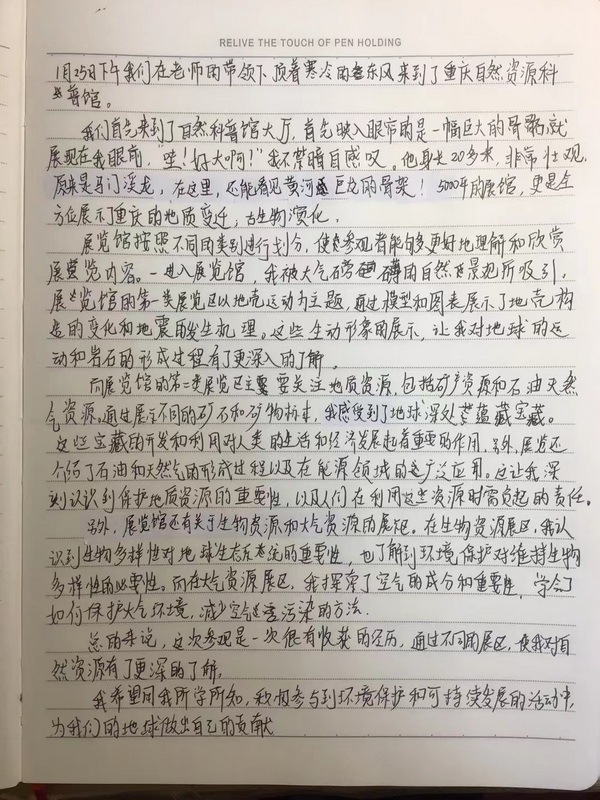 RELIVE THE TOUCH OF PEN HOLDING
1月25日下午我们在老师的带领下顶着寒冷的东风来到了重庆自然资源科
普馆。
我们首先来到了自然科普馆大厅,首先映入眼帘的是一幅巨大的骨骼或
展现在我眼前,"哇!好大啊!"我不禁暗自感叹,他身长20多米,非常壮观,
原来是马门溪龙,在这里,还能看见黄河巨龙的骨架!5000平的展馆,更是全
方位展示了重庆的地质变迁,古生物演化.
展览馆按照不同的类别进行划分,使参观者能够更好地理解和欣赏
展览内容。一进入展览馆,我被大气磅礴的自然景观所吸引,
展览馆的第一类展览区以地壳运动为主题,通过模型和图表展示了地壳构
造的变化和地震的发生机理。这些生动形象的展示,让我对地球的运
动和岩石的形成过程有了更深入的了解。
而展览馆的第二类展览区主要关注地质资源,包括矿产资源和石油天然
气资源。通过展示不同的矿石和矿物标本,我感受到了地球深处蕴藏宝藏。
这些宝藏的开发和利用对人类的生活和经济发展起着重要的作用,另外,展览还
介绍了石油和天然气的形成过程以及在能源领域的广泛应用。这让我深
刻认识到保护地质资源的重要性,以及人们在利用这些资源时需负起的责任。
另外,展览馆还有关于生物资源和大气资源的展记。在生物资源展区,我认
识到生物多样性对地球生态系统的重要性,也了解到环境保护对维持生物
多样性的必要性。而在大气资源展区,我探索了空气的成分和重要性,学会了
如何保护大气环境,减少空气污染的方法.
总的来说,这次参观是一次很有收获的经历,通过不同的展区,使我对自
然资源有了更深的了解,
我希望用我所学所知,积极参与到环境保护和可持续发展的活动中,
为我们的地球做出自己的贡献